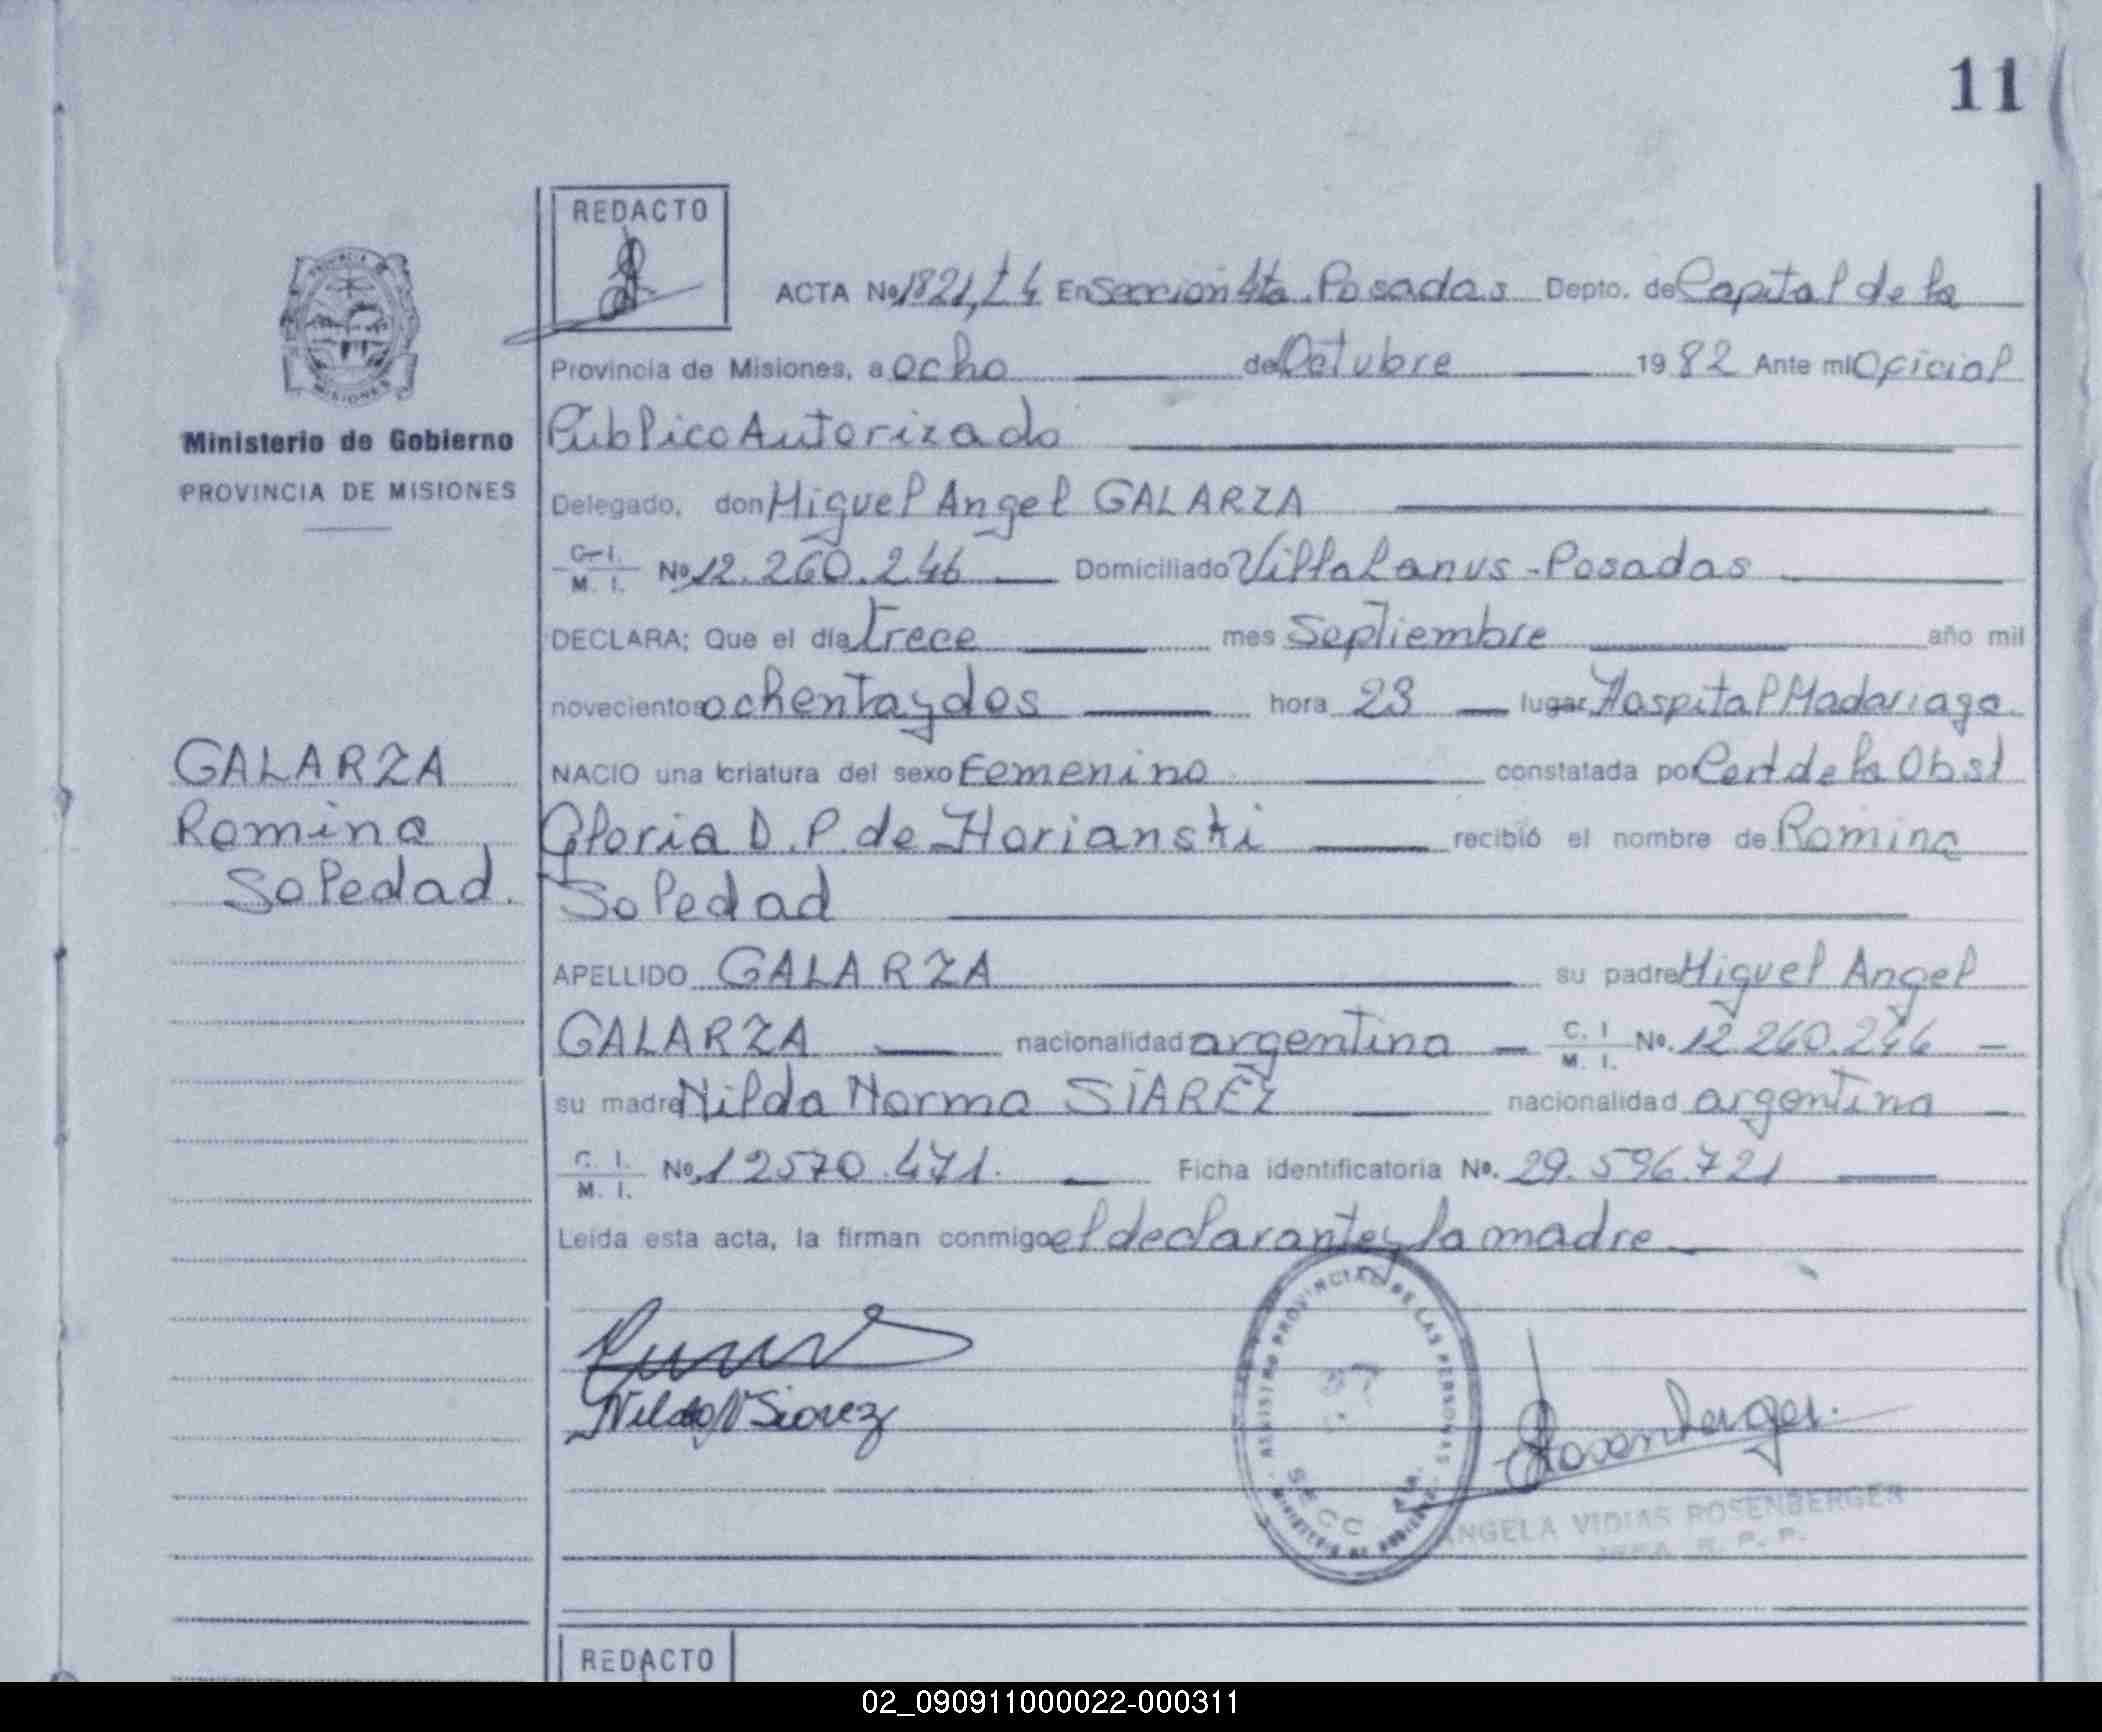 11
REDACTO
ACTA Nº 1821, t 4 En Sección 4ta. Posadas Depto. de Capital de la
Provincia de Misiones, a ocho de Octubre 1982 Ante mi Oficial
Público Autorizado
Ministerio de Gobierno
PROVINCIA DE MISIONES
Delegado, don Miguel Angel GALARZA
C. I. M. I. Nº 12.260.246 Domiciliado Villa Lanus - Posadas
DECLARA; Que el día trece mes Septiembre año mil
novecientos ochenta y dos hora 23 lugar Hospital Madariaga.
NACIO una criatura del sexo Femenino constatada por Cert de la Obst
Gloria D. P. de Horianski recibió el nombre de Romina
Soledad
GALARZA
Romina
Soledad.
APELLIDO GALARZA su padre Miguel Angel
GALARZA nacionalidad argentina C. I. M. I. Nº. 12 260.246
su madre Nilda Norma SIAREZ nacionalidad argentina
C. I. M. I. Nº 12570.471. Ficha identificatoria Nº. 29.596.721
Leída esta acta, la firman conmigo el declarante y la madre
Nilda N Siarez
REGISTRO PROVINCIAL DE LAS PERSONAS
SECC 4ta.
MINISTERIO DE GOBIERNO
Rosenberger.
ANGELA VIDIAS ROSENBERGER
JEFA R. P. P.
REDACTO
02_090911000022-000311